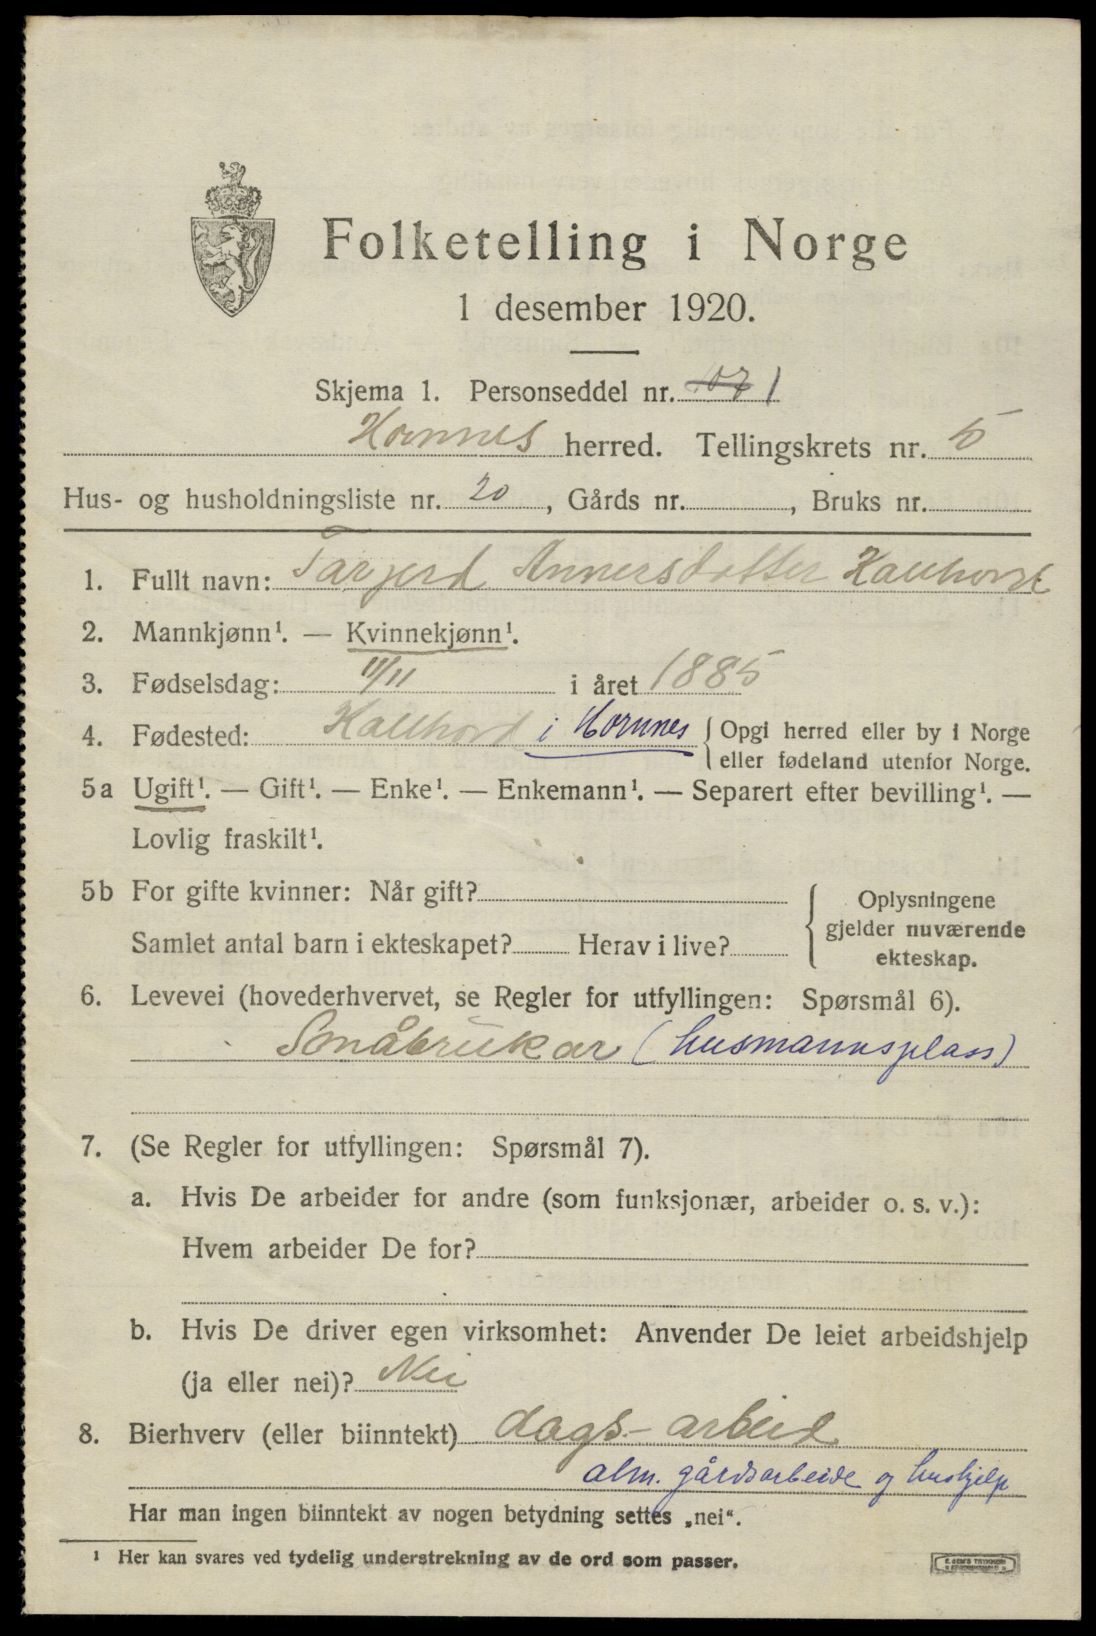 Folketelling i Norge
1 desember 1920.
Skjema 1. Personseddel nr. 107 1
Hornnes herred. Tellingskrets nr. 5
Hus- og husholdningsliste nr. 20, Gårds nr. , Bruks nr.
1. Fullt navn: Tarjerd Annersdatter Kallhovd
2. Mannkjønn¹. — Kvinnekjønn¹.
3. Fødselsdag: 11/11 i året 1885
4. Fødested: Kallhovd i Hornnes { Opgi herred eller by i Norge
eller fødeland utenfor Norge.
5a Ugift¹. — Gift¹. — Enke¹. — Enkemann¹. — Separert efter bevilling¹. —
Lovlig fraskilt¹.
5b For gifte kvinner: Når gift?
Samlet antal barn i ekteskapet? Herav i live?
{ Oplysningene
gjelder nuværende
ekteskap.
6. Levevei (hovederhvervet, se Regler for utfyllingen: Spørsmål 6).
Småbrukar (husmannsplass)
7. (Se Regler for utfyllingen: Spørsmål 7).
a. Hvis De arbeider for andre (som funksjonær, arbeider o. s. v.):
Hvem arbeider De for?
b. Hvis De driver egen virksomhet: Anvender De leiet arbeidshjelp
(ja eller nei)? Nei
8. Bierhverv (eller biinntekt) dags-arbeid
alm. gårdsarbeide og hushjelp
Har man ingen biinntekt av nogen betydning settes „nei“.
¹ Her kan svares ved tydelig understrekning av de ord som passer.